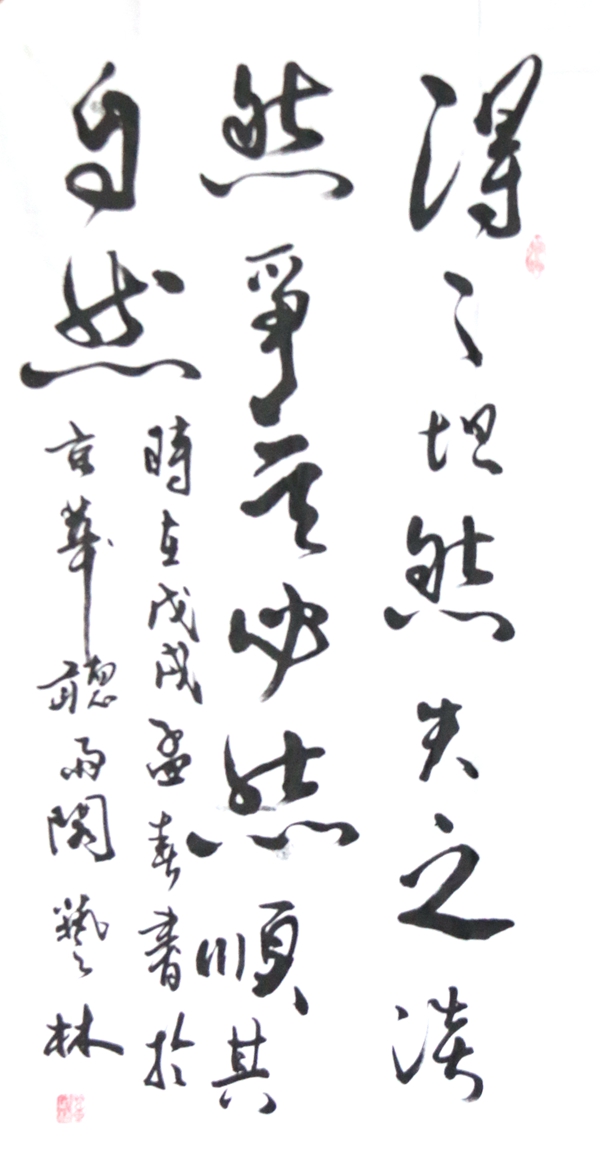 得之坦然失之淡
然爭其必然順其
自然
時在戊戌孟春書於
京華聽雨閣藝林